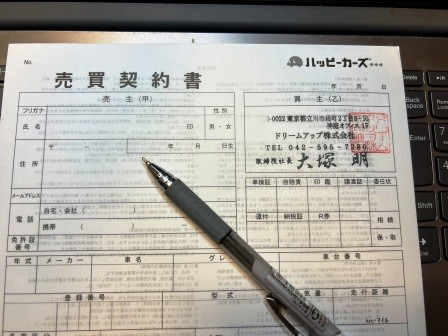 No.
ハッピーカーズ
売買契約書
年 月 日
売 主（甲）
買 主（乙）
フリガナ
性 別
氏 名
印
男・女
〒
年 月 日生
住 所
ドリームアップ株式会社
TEL 042-595-7280
取締役社長 大塚 明
メールアドレス
車検証 自賠責 印 鑑 譲渡証 委任状
電 話
自宅・会社（ ）
携帯（ ）
還付 納税証 R券
相 続
保・取
免許証番号
年 式 メーカー 車 名 グレ
車 台 番 号
登 録 番 号
型 式
走 行 距 離
km・マイル
Delete
Back space
Enter